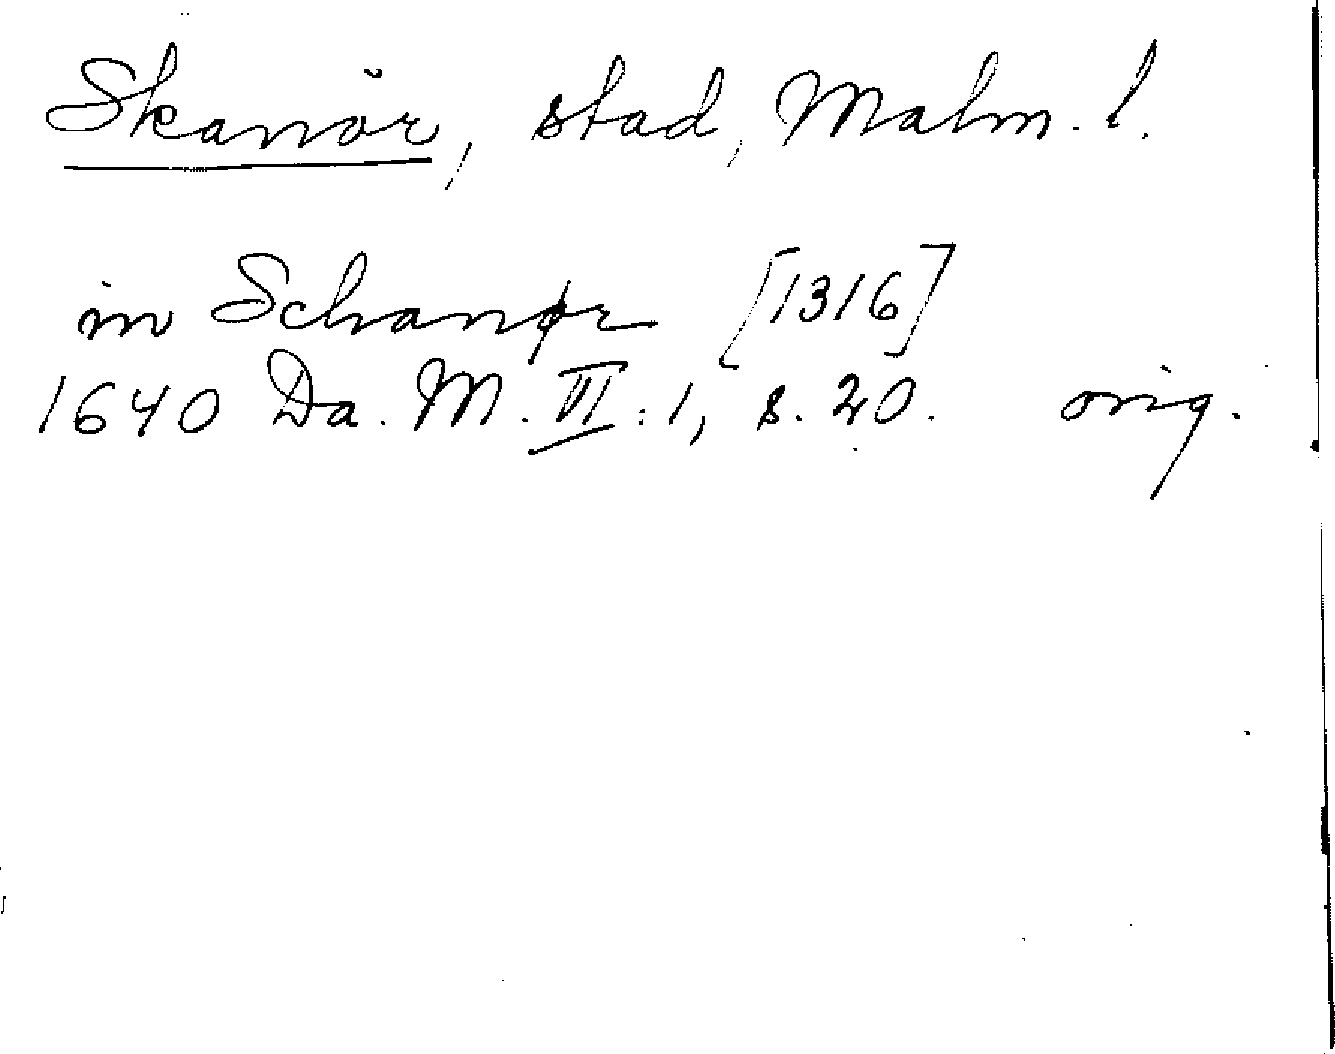 Skanör, stad, Malm. l.
in Schanør [1316]
1640 Da. M. VI: 1, s. 20. orig.